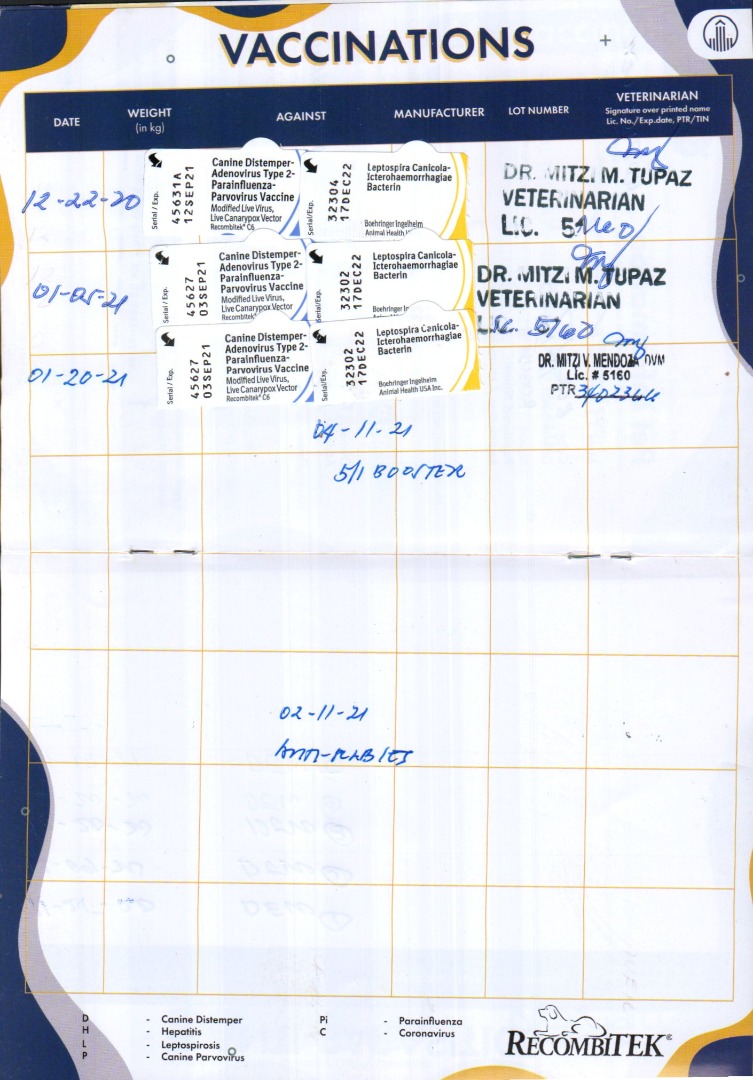 VACCINATIONS
DATE
WEIGHT
(in kg)
AGAINST
MANUFACTURER
LOT NUMBER
VETERINARIAN
Signature over printed name
Lic. No./Exp.date, PTR/TIN
12-22-20
Serial / Exp.
45631A
12SEP21
Canine Distemper-
Adenovirus Type 2-
Parainfluenza-
Parvovirus Vaccine
Modified Live Virus,
Live Canarypox Vector
Recombitek® C6
Serial/Exp.
32304
17DEC22
Leptospira Canicola-
Icterohaemorrhagiae
Bacterin
Boehringer Ingelheim
Animal Health U
DR. MITZI M. TUPAZ
VETERINARIAN
LIC. 5160
01-05-21
Serial / Exp.
45627
03SEP21
Canine Distemper-
Adenovirus Type 2-
Parainfluenza-
Parvovirus Vaccine
Modified Live Virus,
Live Canarypox Vector
Recombitek®
Serial/Exp.
32302
17DEC22
Leptospira Canicola-
Icterohaemorrhagiae
Bacterin
Boehringer In
DR. MITZI M. TUPAZ
VETERINARIAN
LIC. 5160
01-20-21
Serial / Exp.
45627
03SEP21
Canine Distemper-
Adenovirus Type 2-
Parainfluenza-
Parvovirus Vaccine
Modified Live Virus,
Live Canarypox Vector
Recombitek® C6
Serial/Exp.
32302
17DEC22
Leptospira Canicola-
Icterohaemorrhagiae
Bacterin
Boehringer Ingelheim
Animal Health USA Inc.
DR. MITZI V. MENDOZA DVM
Lic. # 5160
PTR
04-11-21
5/1 BOOSTER
02-11-21
ANTI-RABIES
D - Canine Distemper
H - Hepatitis
L - Leptospirosis
P - Canine Parvovirus
Pi - Parainfluenza
C - Coronavirus
RECOMBITEK®